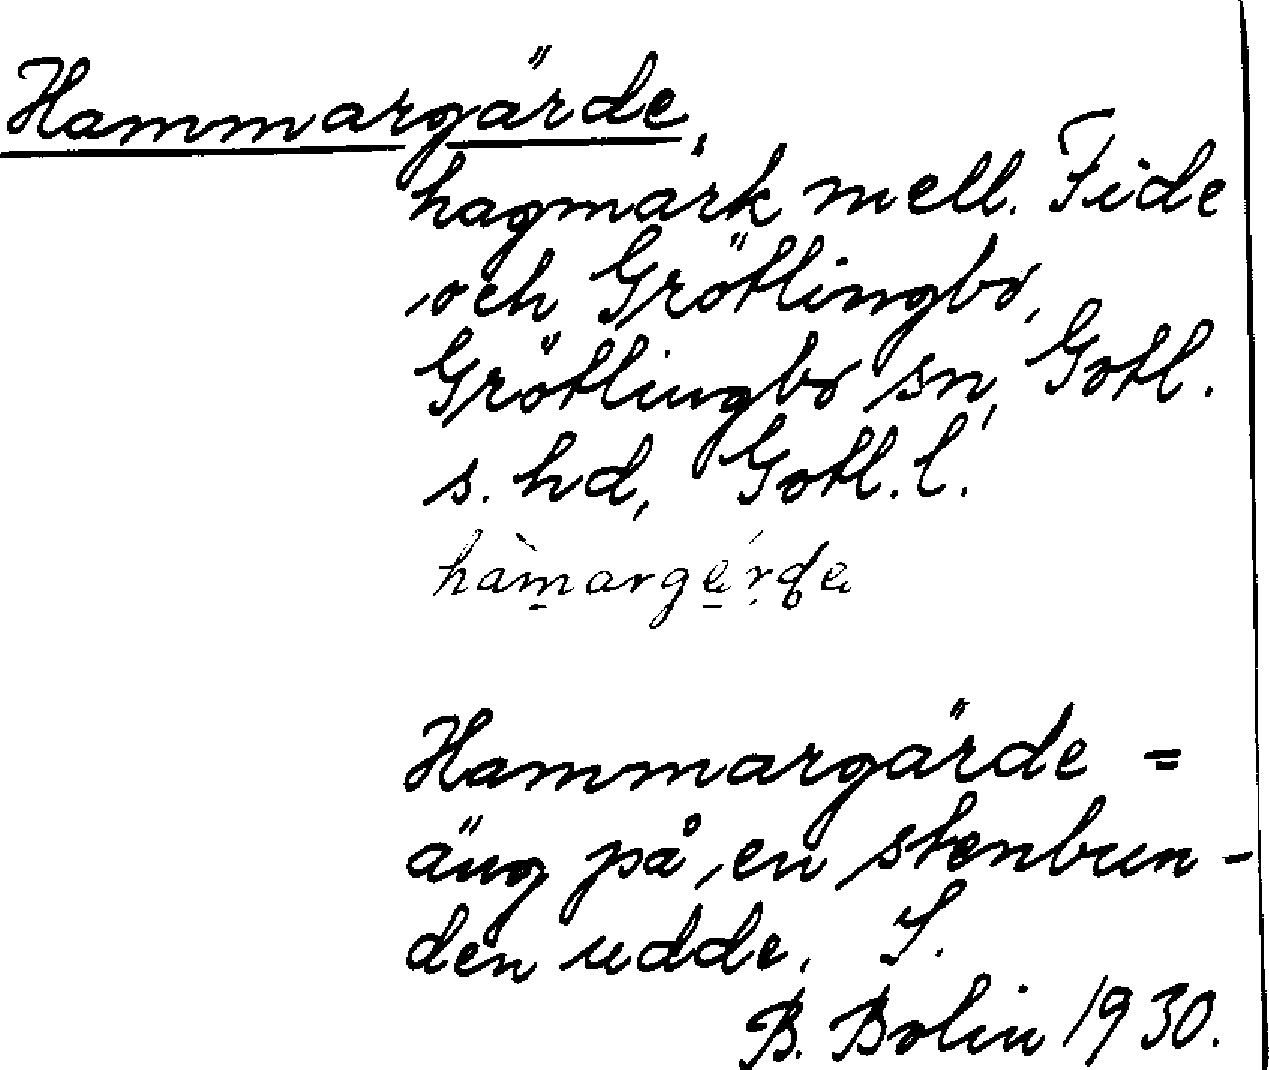 Hammargärde,
hagmark mell. Fide
och Grötlingbo,
Grötlingbo sn, Gotl.
s. hd, Gotl. l.
Hammargärde =
äng på en stenbun-
den udde. S.
B. Bolin 1930.